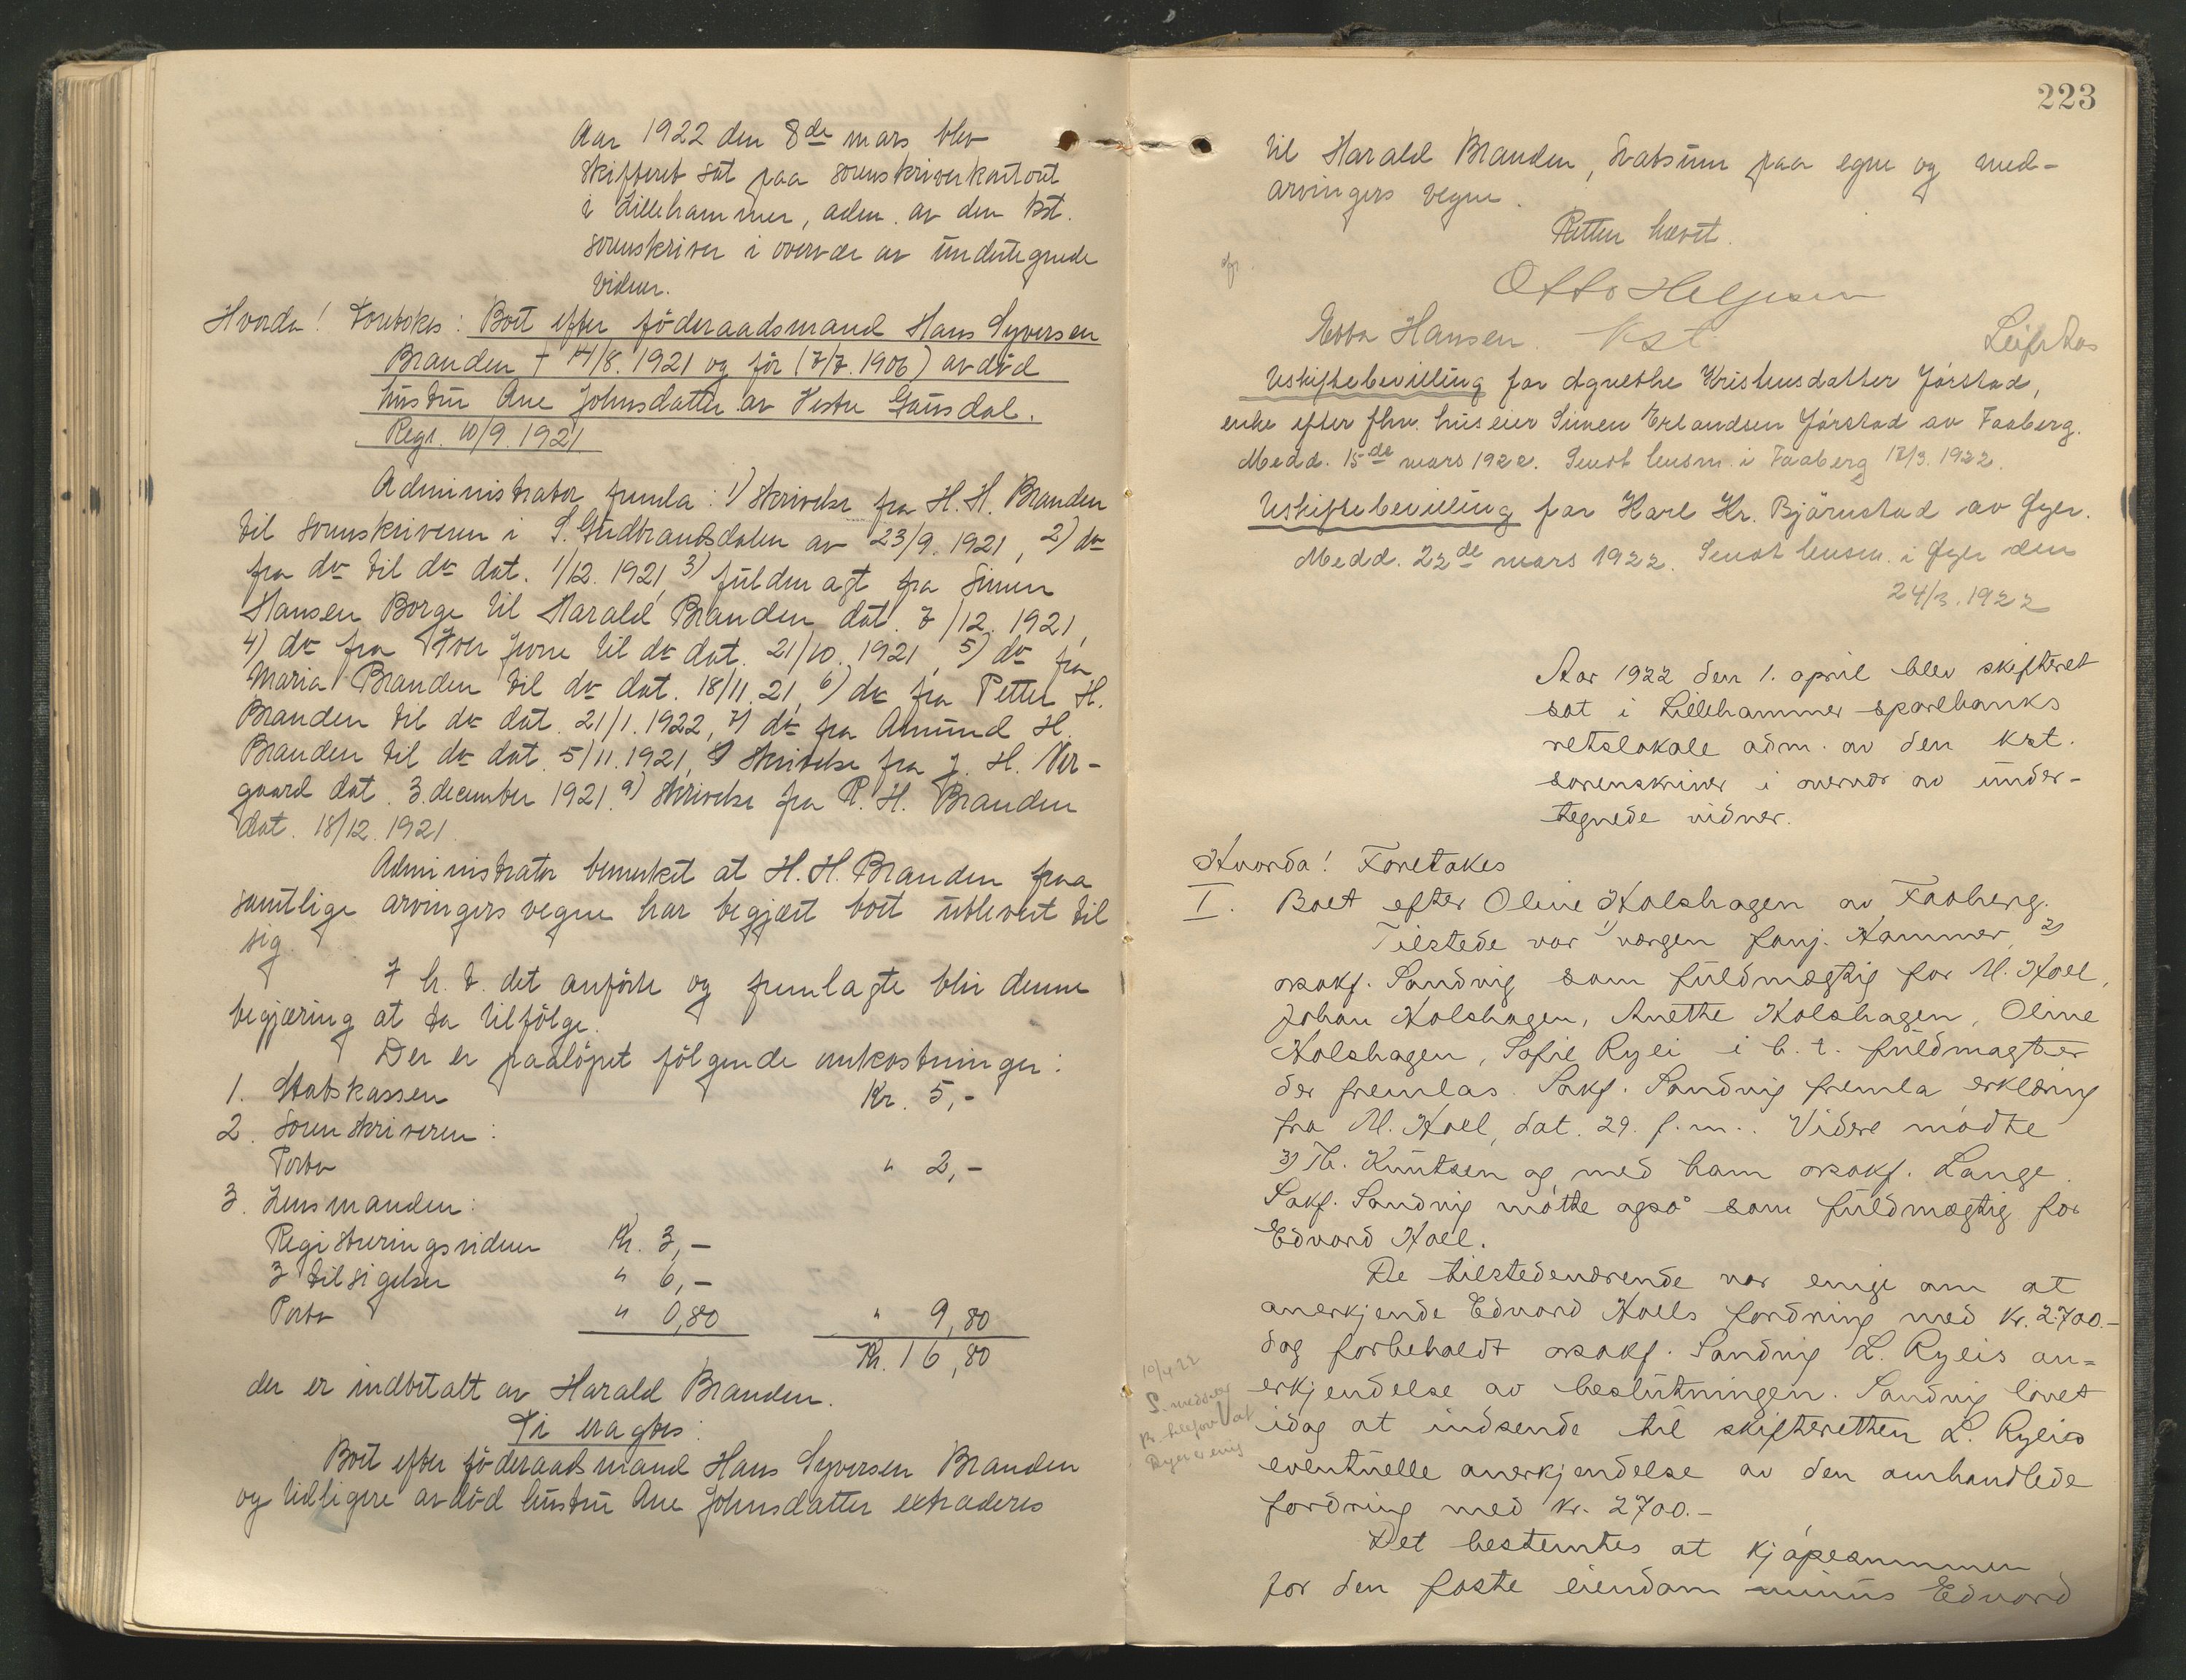 Aar 1922 den 8de mars blev
skifteret sat paa sorenskriverkontoret
i Lillehammer, adm. av den kst.
sorenskriver i overvær av undertegnede
vidner.
Hvorda! Foretokes: Boet efter föderaadsmand Hans Syversen
Branden † 14/8. 1921 og för (7/7. 1906) avdöd
hustru Ane Johnsdatter av Vestre Gausdal.
Regr. 10/9. 1921
Administrator fremla: 1) Skrivelse fra H. H. Branden
til sorenskriveren i S. Gudbrandsdalen av 23/9. 1921, 2) do
fra do til do dat. 1/12. 1921, 3) fuldmagt fra Simen
Hansen Borge til Harald Branden dat. 7/12. 1921,
4) do fra Iver til do dat. 21/10. 1921, 5) do fra
Maria Branden til do dat. 18/11. 21, 6) do fra Petter H.
Branden til do dat. 21/1. 1922, 7) do fra Amund H.
Branden til do dat. 5/11. 1921, 8) Skrivelse fra J. H. Ver-
gaard dat. 3. december 1921. 9) Skrivelse fra P. H. Branden
dat. 18/12. 1921.
Administrator bemerket at H. H. Branden paa
samtlige arvingers vegne har begjært boet utlevert til
sig.
I h. t. det anförte og fremlagte blir denne
begjæring at ta tilfölge.
Der er paalöpet fölgende omkostninger:
1. Statskassen Kr. 5,-
2. Sorenskriveren:
Porto " 2,-
3. Lensmanden:
Registreringsvidner Kr. 3,-
3 tilsigelser " 6,-
Porto " 0,80 " 9,80
Kr. 16,80
der er indbetalt av Harald Branden.
Ti eragtes:
Boet efter föderaadsmand Hans Syversen Branden
og tidligere avdöd hustru Ane Johnsdatter extraderes
223
til Harald Branden, Svatsum paa egne og med-
arvingers vegne.
Retten hævet.
Otto Helgesen
Ebba Hansen. Kst. Leif Aas
Uskiftebevilling for Agnethe Kristiansdatter Jörstad,
enke efter fhv. huseier Simen Erlandsen Jörstad av Faaberg.
Medd. 15de mars 1922. Sendt lensm. i Faaberg 17/3. 1922.
Uskiftebevilling for Karl Kr. Bjørnstad av Øyer.
Medd. 22de mars 1922. Sendt lensm. i Øyer den
24/3. 1922
Aar 1922 den 1. april blev skifteret
sat i Lillehammer sparebanks
retslokale adm. av den kst.
sorenskriver i overvær av under-
tegnede vidner.
Hvorda! Foretakes
I. Boet efter Oline Kolshagen av Faaberg.
Tilstede var 1) vergen Hammer, 2)
orsakf. Sandvig som fuldmægtig for M. Hoel,
Johan Kolshagen, Anethe Kolshagen, Oline
Kolshagen, Sofie Rylei i h. t. fuldmagter
der fremlas. Sakf. Sandvig fremla erklæring
fra M. Hoel, dat. 29. f. m.. Videre mödte
3) Th. Knutsen og med ham orsakf. Lange.
Sakf. Sandvig mötte også som fuldmægtig for
Edvard Hoel.
De tilstedeværende var enige om at
anerkjende Edvard Hoels fordring med kr. 2700.-
dog forbeholdt orsakf. Sandvig L. Ryleis an=
erkjendelse av beslutningen. Sandvig lovet
idag at indsende til skifteretten L. Ryleis
eventuelle anerkjendelse av den omhandlede
fordring med kr. 2700.-
10/4 22
S. meddeler
at
er enig
Det bestemtes at kjöpesummen
for den faste eiendom minus Edvard